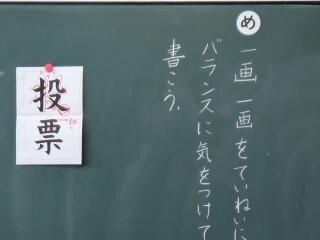 め
一画一画をていねいに
バランスに気をつけて
書こう。
投票